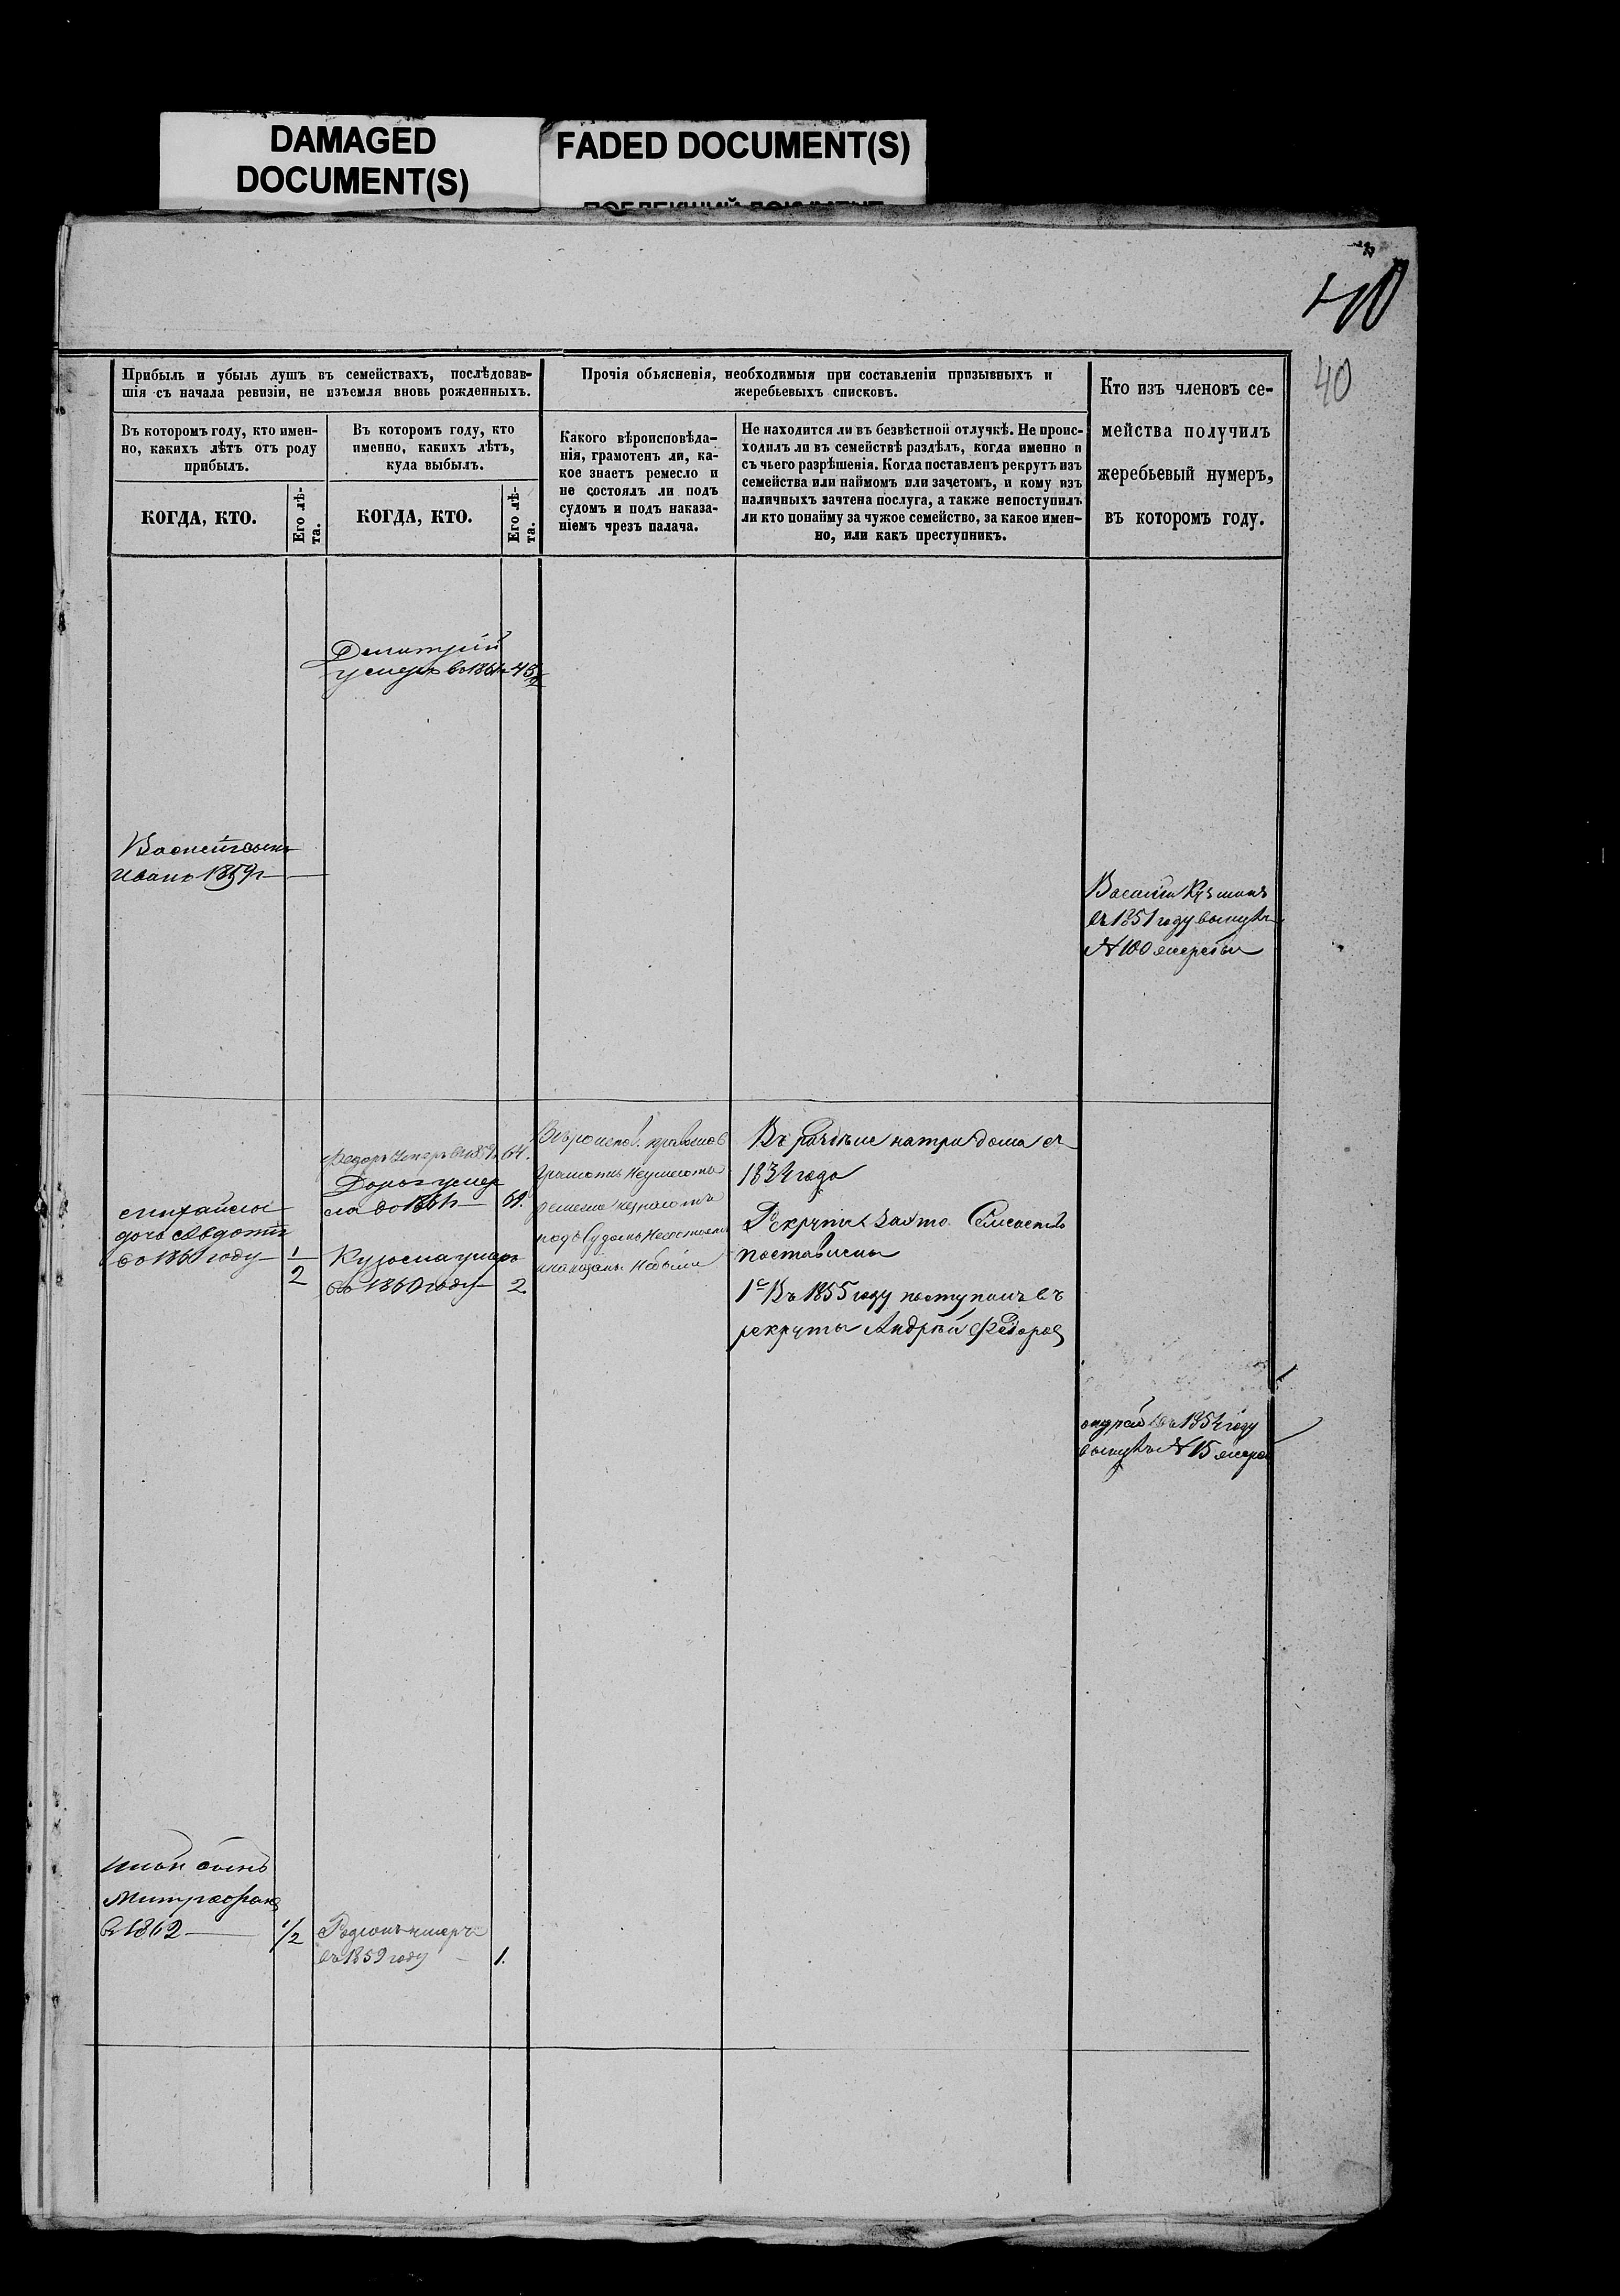 DAMAGED
DOCUMENT(S)
FADED DOCUMENT(S)
40
40
Прибыль и убыль душъ въ семействахъ, послѣдовав-
шія съ начала ревизіи, не изъемля вновь рожденныхъ.
Прочія объясненія, необходимыя при составленіи призывныхъ и
жеребьевыхъ списковъ.
Кто изъ членовъ се-
мейства получилъ
жеребьевый нумеръ,
въ которомъ году.
Въ которомъ году, кто имен-
но, какихъ лѣтъ отъ роду
прибылъ.
Въ которомъ году, кто
именно, какихъ лѣтъ,
куда выбылъ.
Какого вѣроисповѣда-
нія, грамотенъ ли, ка-
кое знаетъ ремесло и
не состоялъ ли подъ
судомъ и подъ наказа-
ніемъ чрезъ палача.
Не находится ли въ безвѣстной отлучкѣ. Не проис-
ходилъ ли въ семействѣ раздѣлъ, когда именно и
съ чьего разрѣшенія. Когда поставленъ рекрутъ изъ
семейства или наймомъ или зачетомъ, и кому изъ
наличныхъ зачтена послуга, а также непоступилъ
ли кто понайму за чужое семейство, за какое имен-
но, или какъ преступникъ.
КОГДА, КТО.
Его лѣ-
та.
КОГДА, КТО.
Его лѣ-
та.
Дмитрій
умеръ во 1861
сынъ
Иванъ 1859г
Василій Кузминъ
въ 1851 году вынулъ
№ 100 жеребья
Федоръ умеръ 64.
умер
ла во 1861г 61.
дочь Авдотья
во 1860 году 1/2
Кузьма умеръ
въ 1860 году 2
Вѣроиспов. православ
грамотѣ Неумеютъ
ремесло незнаютъ
подъ судомъ Несостояли
инаказаны Небыли
Въ раздѣле натри дома съ
1834 года
Рекруты
поставлены
1е Въ 1855 году поступилъ въ
рекруты Андрѣй Федоров
андрей въ 1854 году
вынулъ № 15 жереб
сынъ
Митрофанъ
в 1862 1/2
Родіонъ умеръ
въ 1859 году 1.